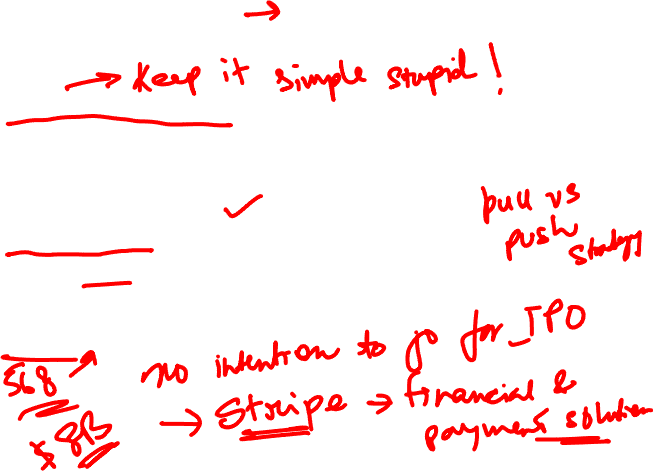 → Keep it simple stupid!
pull vs
push
strategy
no intention to go for IPO
568
$8B
→ Stripe → financial &
payment solution